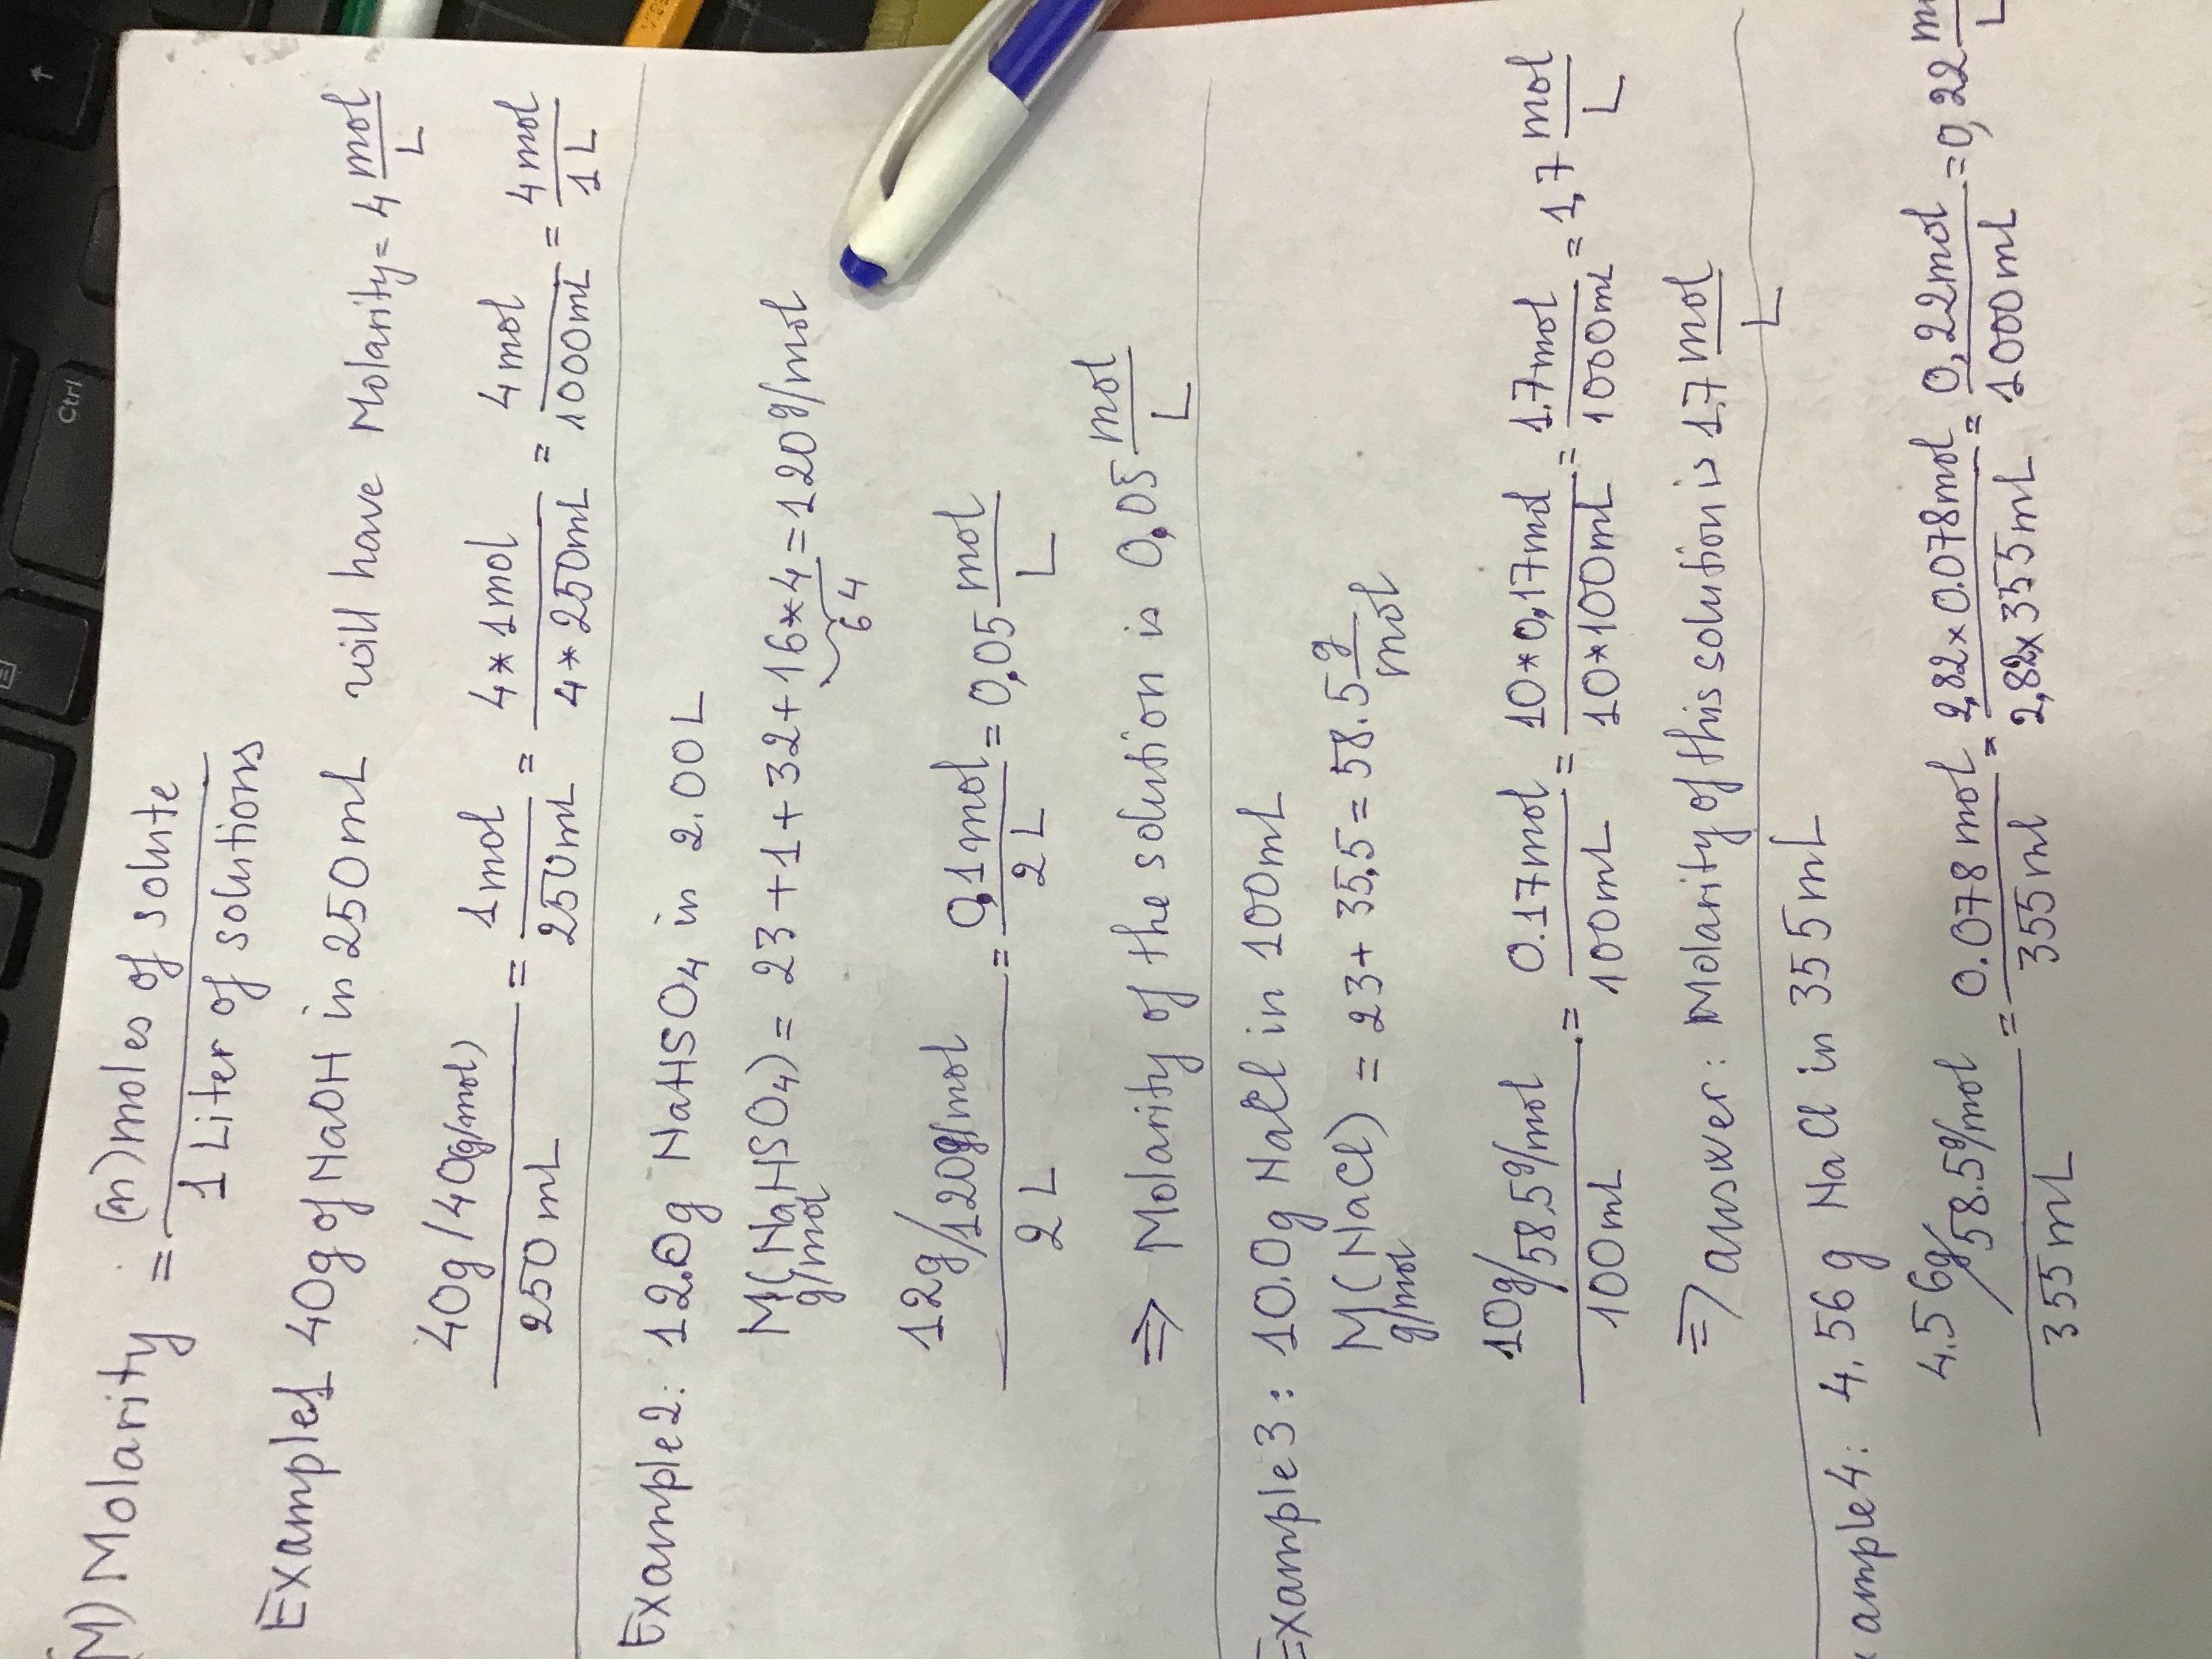 (M) Molarity = (n) moles of solute / 1 Liter of solutions
Example1 40g of NaOH in 250mL will have Molarity = 4 mol/L
40g/40g/mol) / 250mL = 1mol / 250mL = 4*1mol / 4*250mL = 4mol / 1000mL = 4mol / 1L
Example2: 12.0g NaHSO4 in 2.00L
M(NaHSO4) = 23+1+32+16*4 = 120g/mol
g/mol 64
12g/120g/mol / 2L = 0,1mol / 2L = 0,05 mol/L
⇒ Molarity of the solution is 0,05 mol/L
Example3: 10.0g NaCl in 100mL
M(NaCl) = 23+35,5 = 58.5 g/mol
g/mol
10g/58.5g/mol / 100mL = 0.17mol / 100mL = 10*0,17mol / 10*100mL = 1.7mol / 1000mL = 1,7 mol/L
⇒ answer: Molarity of this solution is 1,7 mol/L
ample4: 4.56g NaCl in 355mL
4.56g/58.5g/mol / 355mL = 0.078mol / 355mL = 2,82x0.078mol / 2,82x355mL = 0,22mol / 1000mL = 0,22 m / L
Ctrl